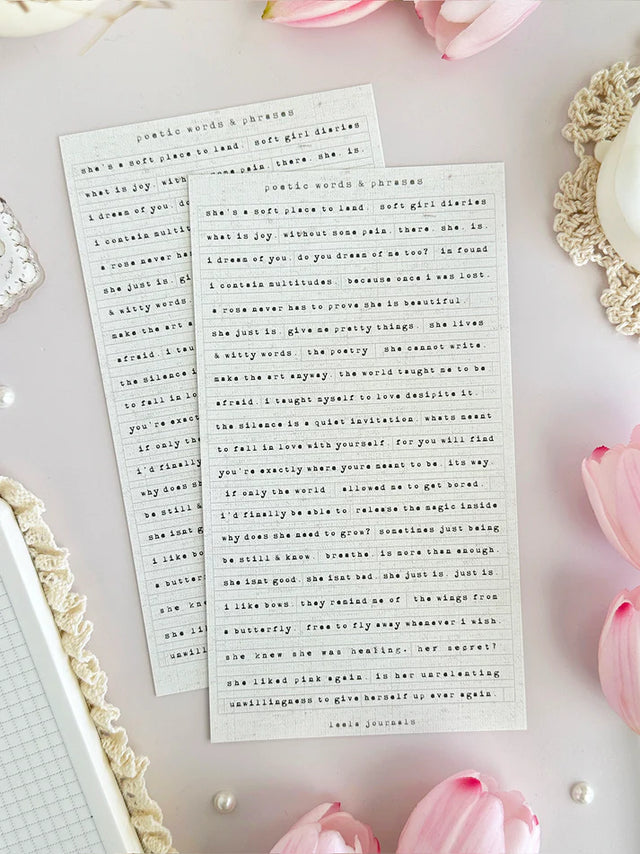 poetic words & phrases
she's a soft place to land. soft girl diaries
what is joy. with some pain. there. she. is.
i dream of you. do
i contain multit
a rose never has
she just is. gi
& witty words.
make the art a
afraid. i tau
the silence i
to fall in lov
you're exact
if only the
i'd finally
why does sh
be still &
she isnt
i like bo
a butter
she kne
she lik
unwill
poetic words & phrases
she's a soft place to land. soft girl diaries
what is joy. without some pain. there. she. is.
i dream of you. do you dream of me too? im found
i contain multitudes. because once i was lost.
a rose never has to prove she is beautiful.
she just is. give me pretty things. she lives
& witty words. the poetry she cannot write.
make the art anyway. the world taught me to be
afraid. i taught myself to love desipite it.
the silence is a quiet invitation. whats meant
to fall in love with yourself. for you will find
you're exactly where youre meant to be. its way.
if only the world allowed me to get bored.
i'd finally be able to release the magic inside
why does she need to grow? sometimes just being
be still & know. breathe. is more than enough.
she isnt good. she isnt bad. she just is. just is.
i like bows. they remind me of the wings from
a butterfly. free to fly away whenever i wish.
she knew she was healing. her secret?
she liked pink again. is her unrelenting
unwillingness to give herself up ever again.
leela journals